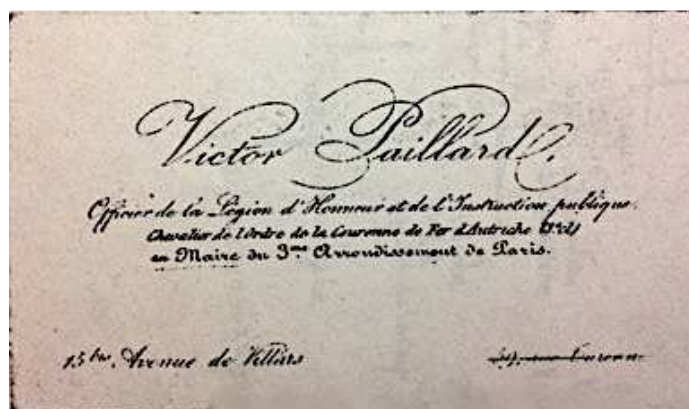 Victor Paillard
Officier de la Légion d'Honneur et de l'Instruction publique.
Chevalier de l'Ordre de la Couronne de Fer d'Autriche
Maire du 3me Arrondissement de Paris.
15 bis, Avenue de Villars